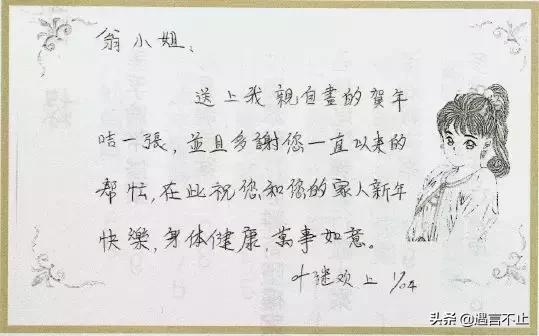 翁小姐:
送上我親自畫的賀年
咭一張,並且多謝您一直以來的
幫忙,在此祝您和您的家人新年
快樂,身体健康 萬事如意。
叶继欢 上 1/04
头条 @遇言不止